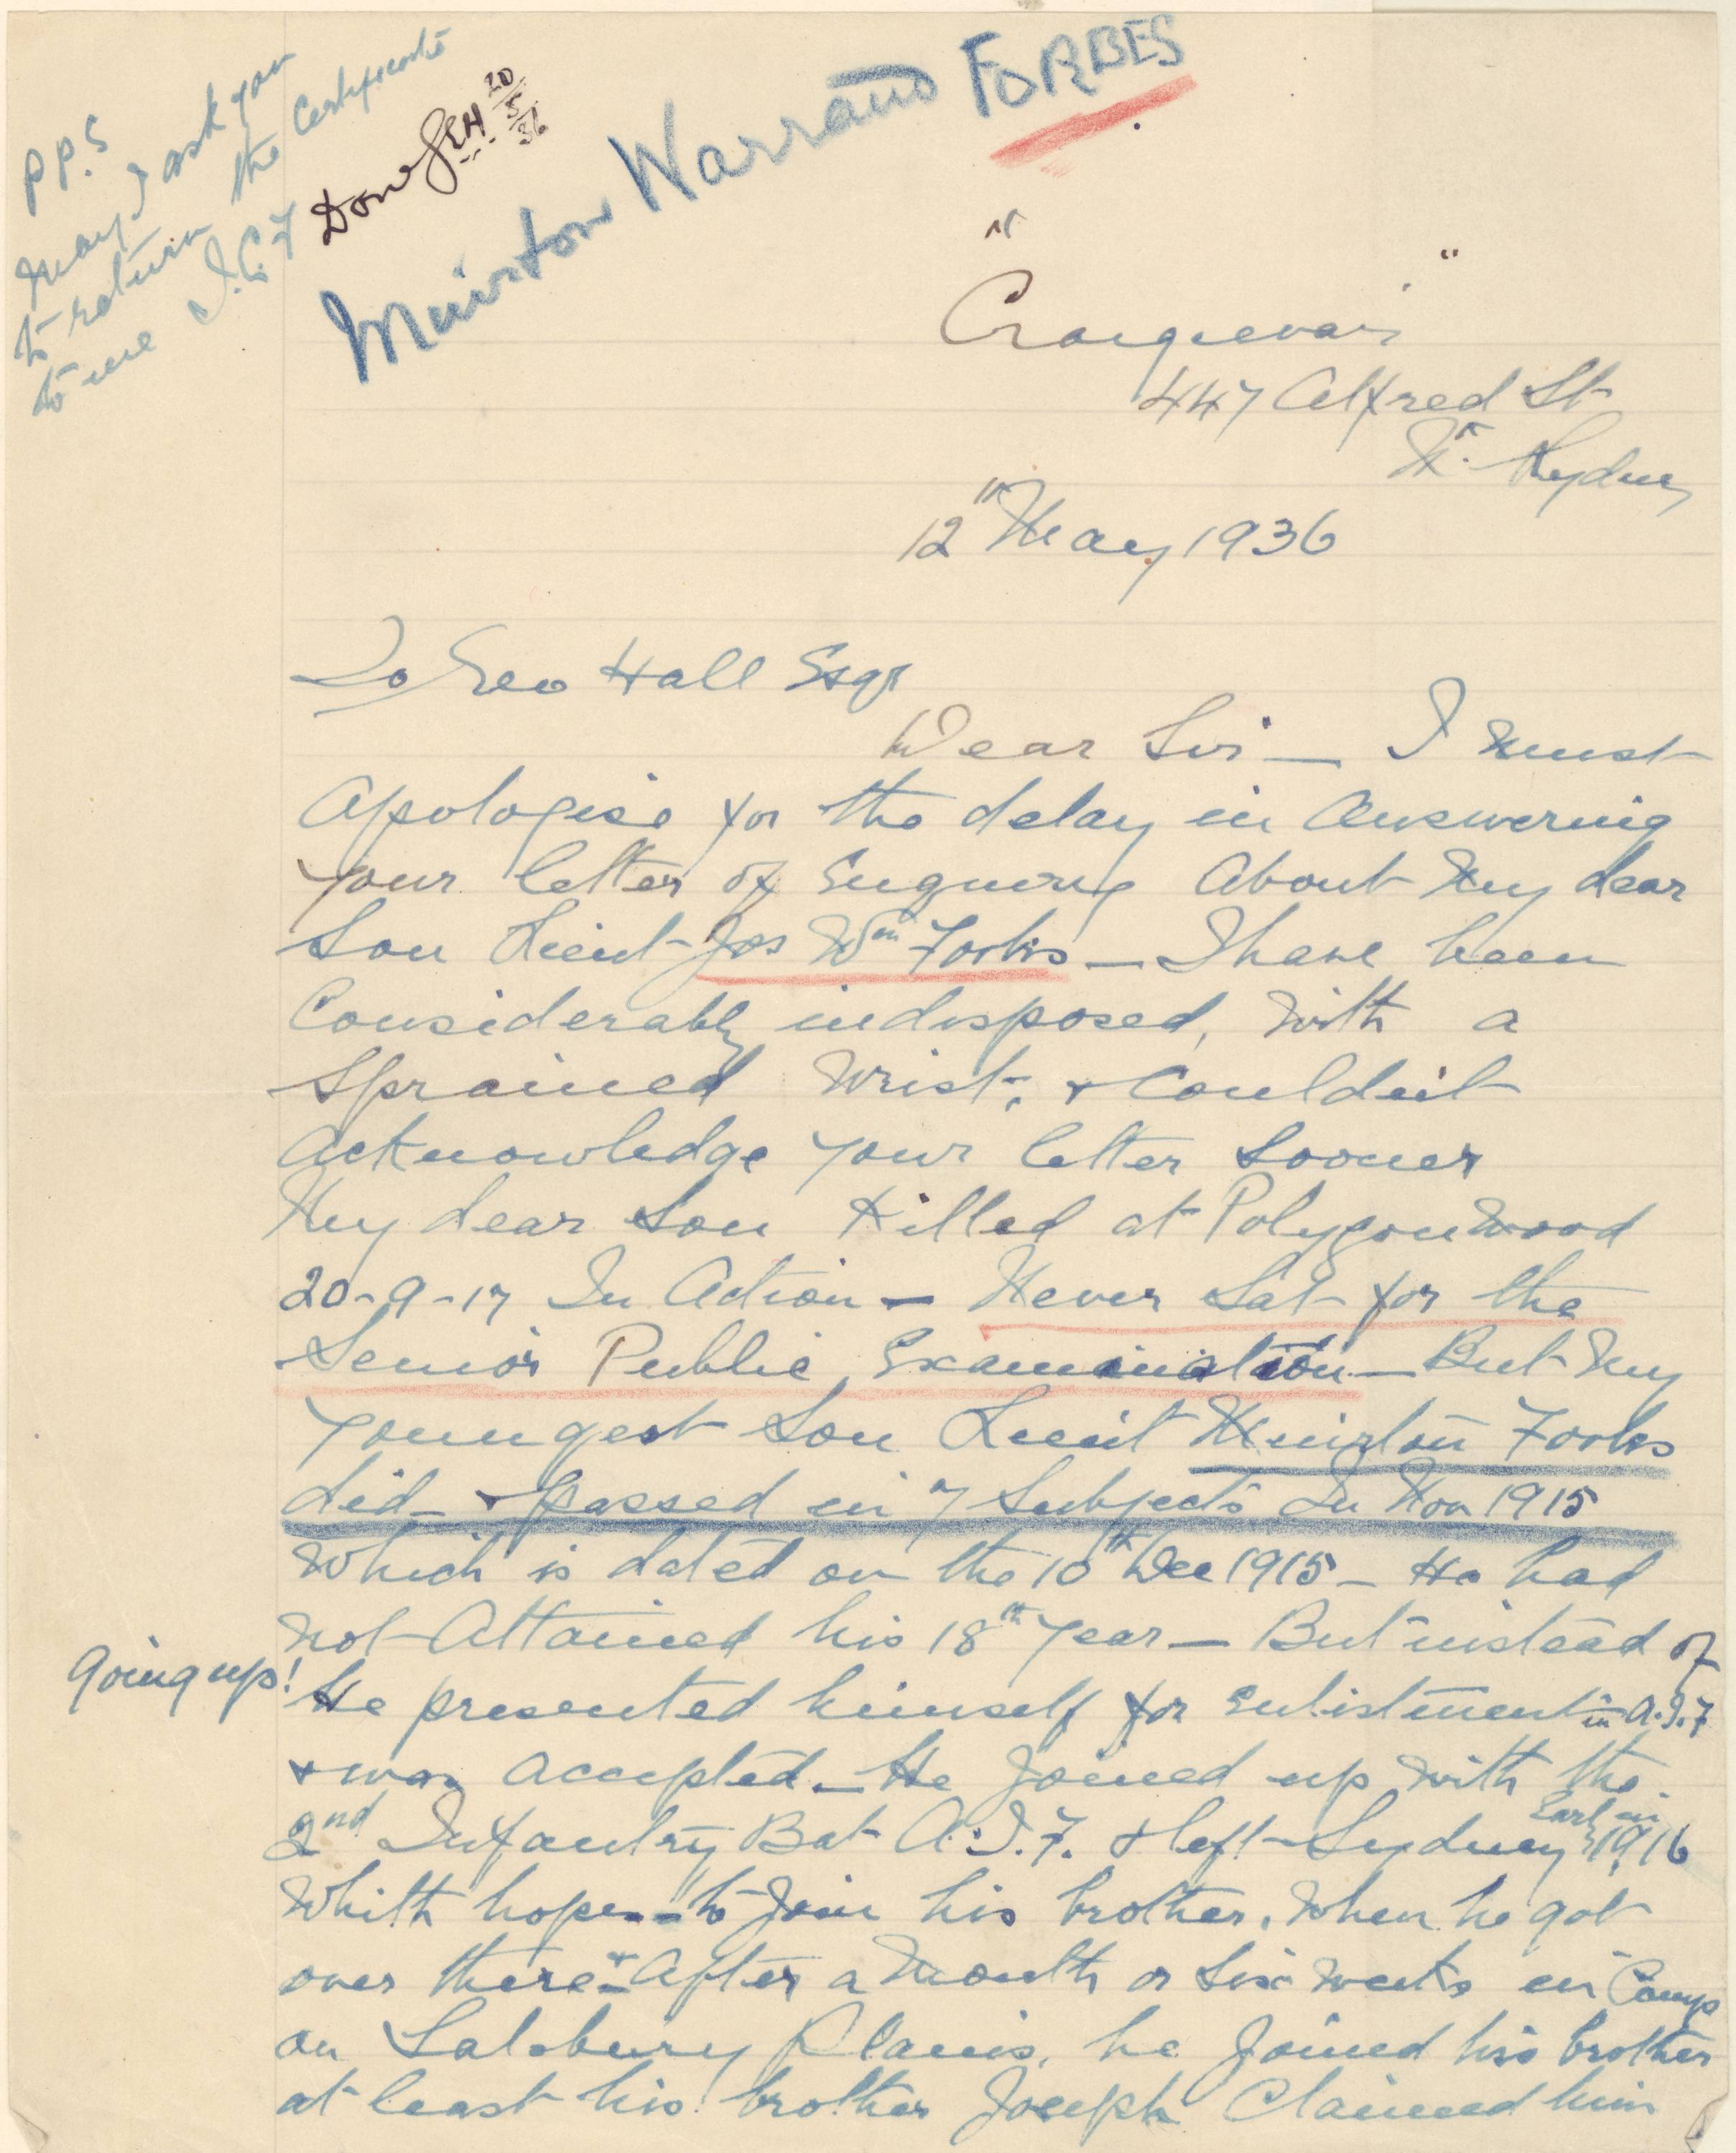 P P. S
May I ask you
to return the Certificate
to me J.C.F
Done GEH 20/5/36
Muirton Warrand FORBES
" Craigievar "
447 Alfred St
Nth Sydney
12th May 1936
To Geo Hall Esqr
Dear Sir — I must
Apologise for the delay in Answering
your letter of Enquiry About My dear
Son Lieut Jos Wm Forbes — I have been
Considerably indisposed, With a
Sprained Wrist, & Couldnt
Acknowledge your letter Sooner
My dear Son Killed at Polygon Wood
20-9-17 In Action — Never Sat for the
Senior Public Examination — But My
Youngest Son Lieut Muirton Forbes
did & passed in 7 Subjects In Nov 1915
Which is dated on the 10th Dec 1915 — He had
Not Attained his 18th Year — But instead of
going up! He presented himself for Enlistment in A.I.F
& was Accepted — He joined up With the
2nd Infantry Bat A.I.F. & left Sydney Early in 1916
Whith hopes to Join his brother, When he got
over there & After a Month or Six Weeks in Camp
on Salsbury Plains, he Joined his brother
at least his brother Joseph Claimed him